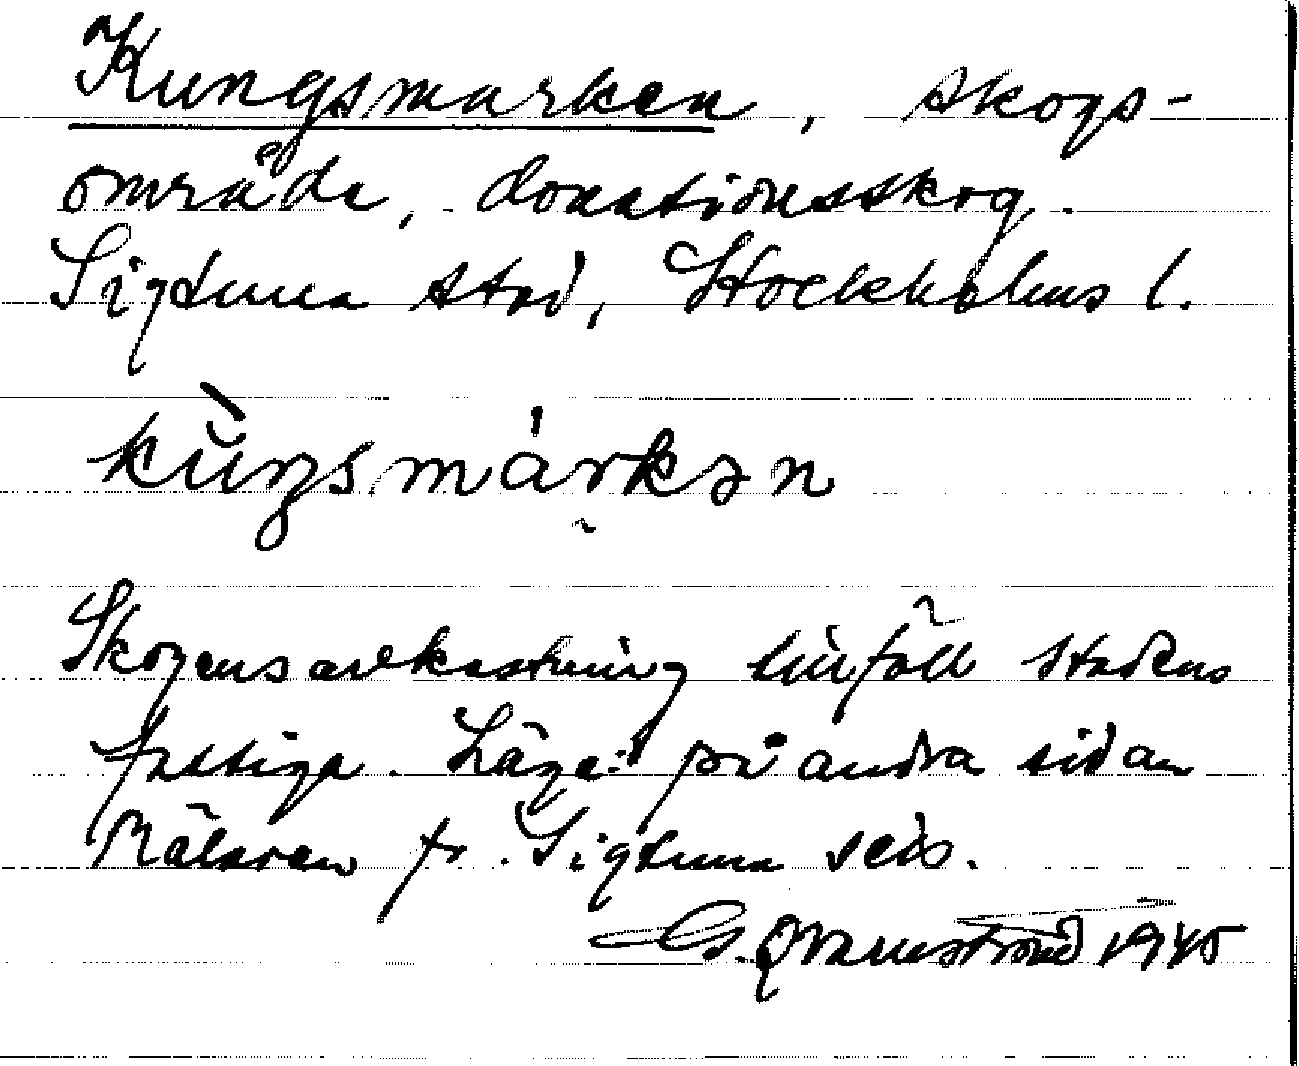 Kungsmarken, skogs-
område, donationsskog.
Sigtuna stad, Stockholms l.
kùŋsmárkən
Skogens avkastning tillföll stadens
fattiga. Läge: på andra sidan
Mälaren fr. Sigtuna sedd.
G. Qvarnström 1945